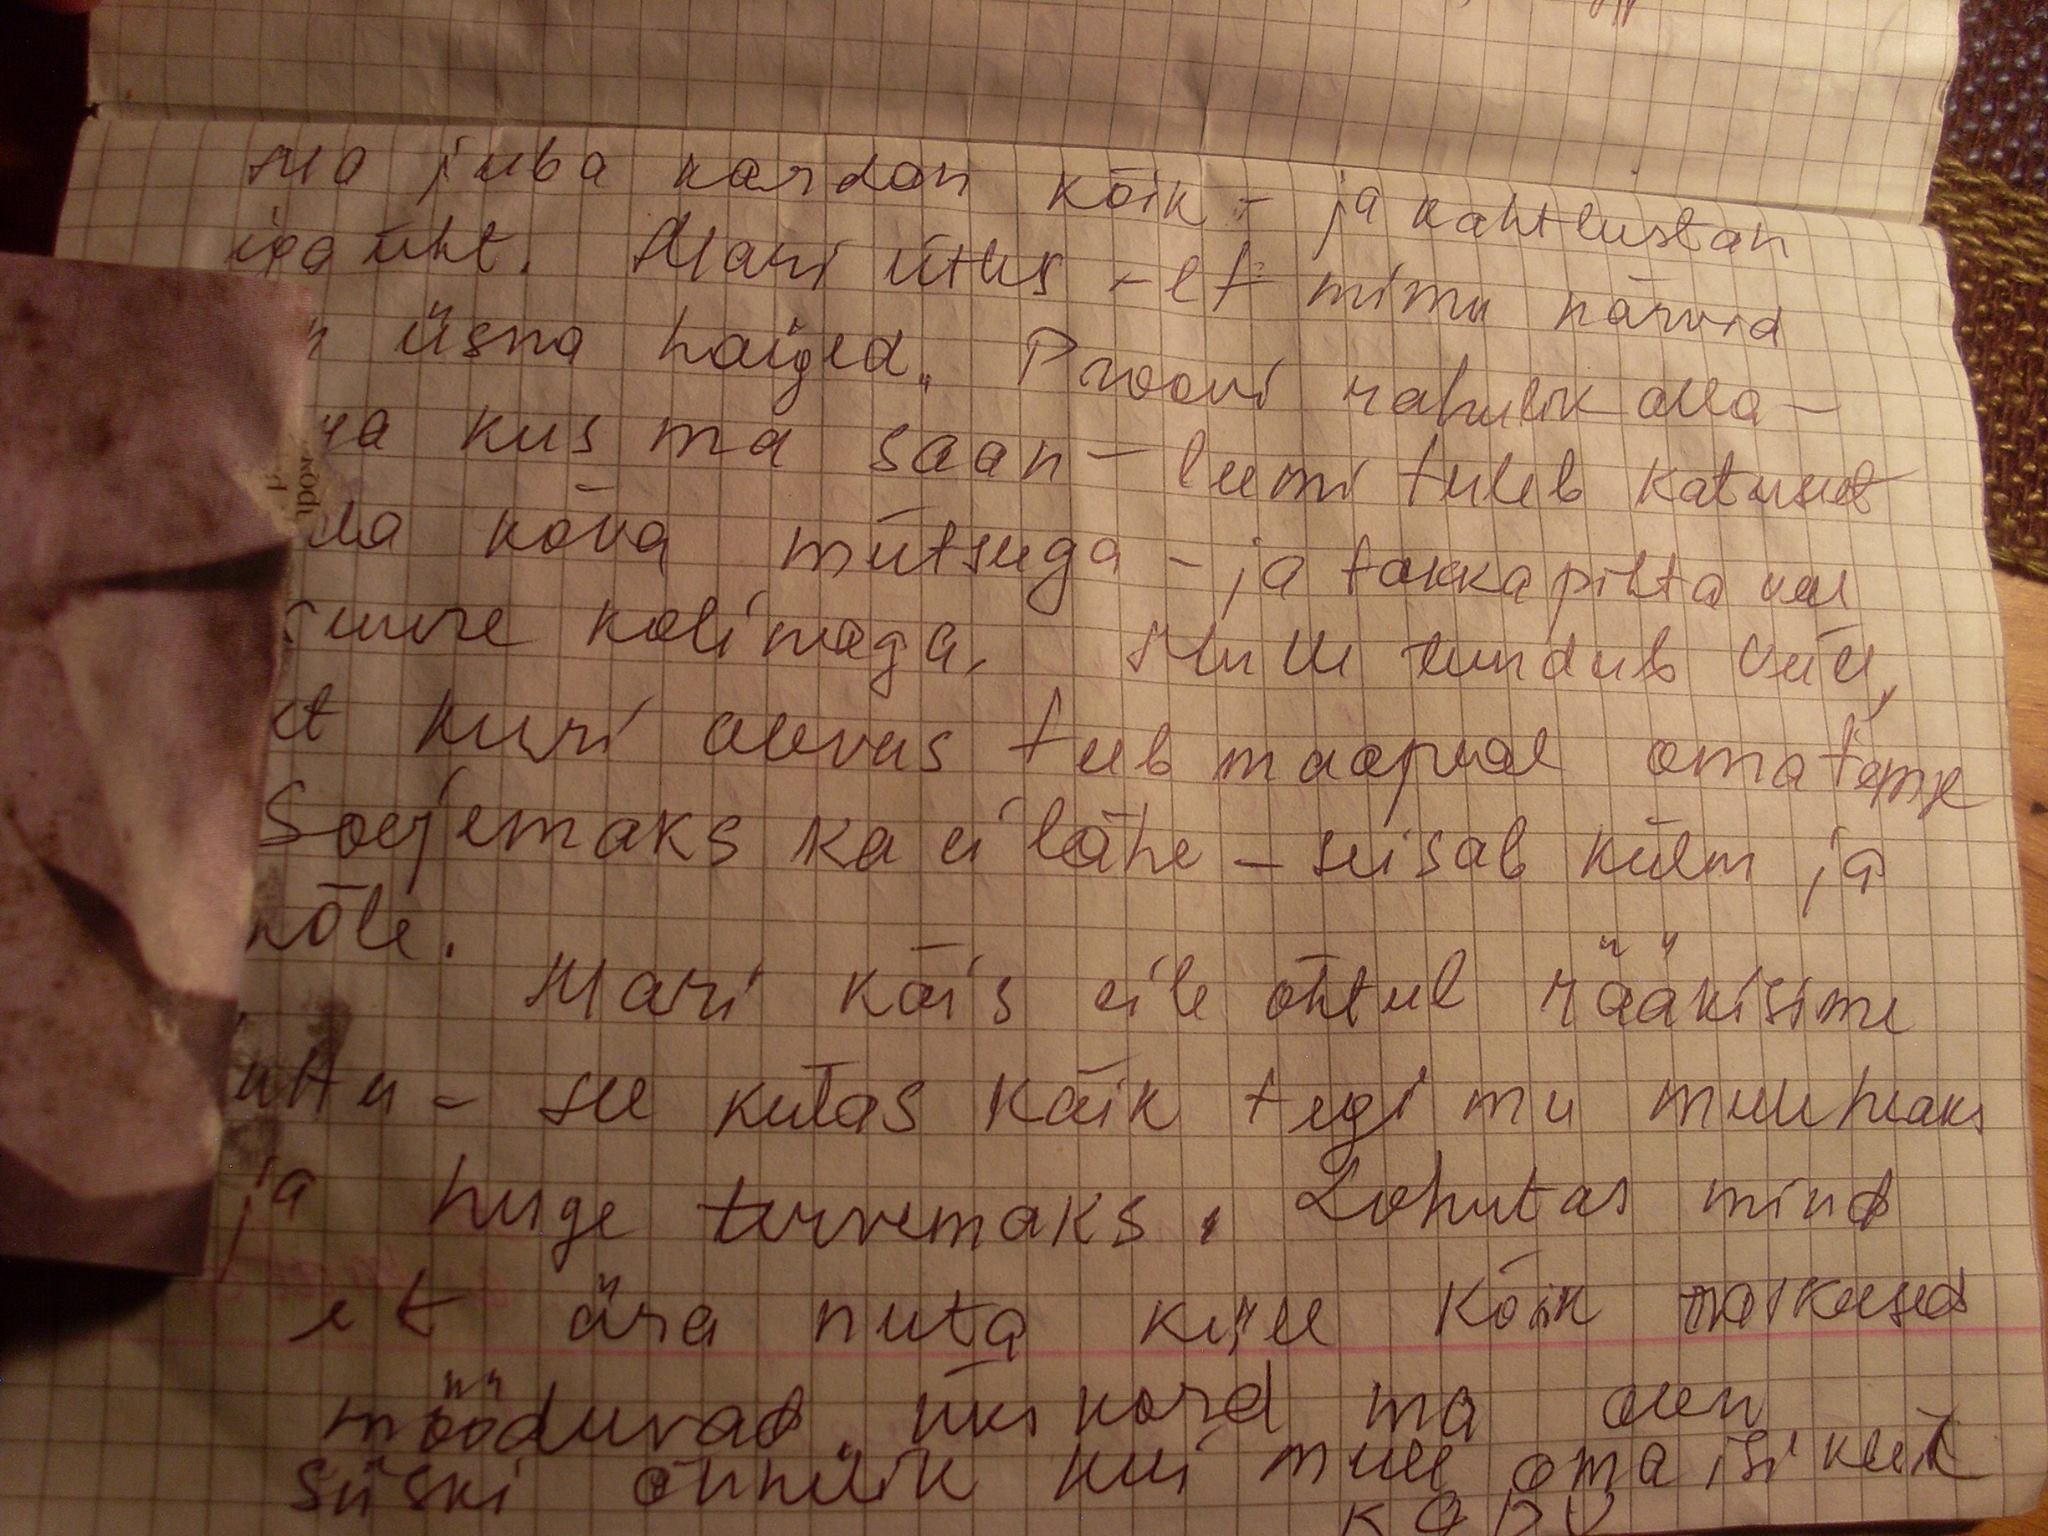 Ma juba kardan kõik - ja kahtlustan
iga üht. Mari ütles - et minu närvid
üsna haiged. Proovi rahulik olla -
kus ma saan - leemi tuleb katuselt
alla kõva mütsuga - ja takka pihta veel
suure kolinaga. Mulle tundub veel,
et kuri alevas teeb maapeal oma tempe
Soejemaks ka ei lähe - seisab külm ja
kõle.
Mari käis eile õhtul rääkisime
juttu - see kutas kõik tegi mu meele heaks
ja hinge tervemaks. Lohutas mind
et ära nuta kulle kõik raskused
mööduvad, ükskord ma olen
siiski õnnelik kui mull oma isiklik
kodu